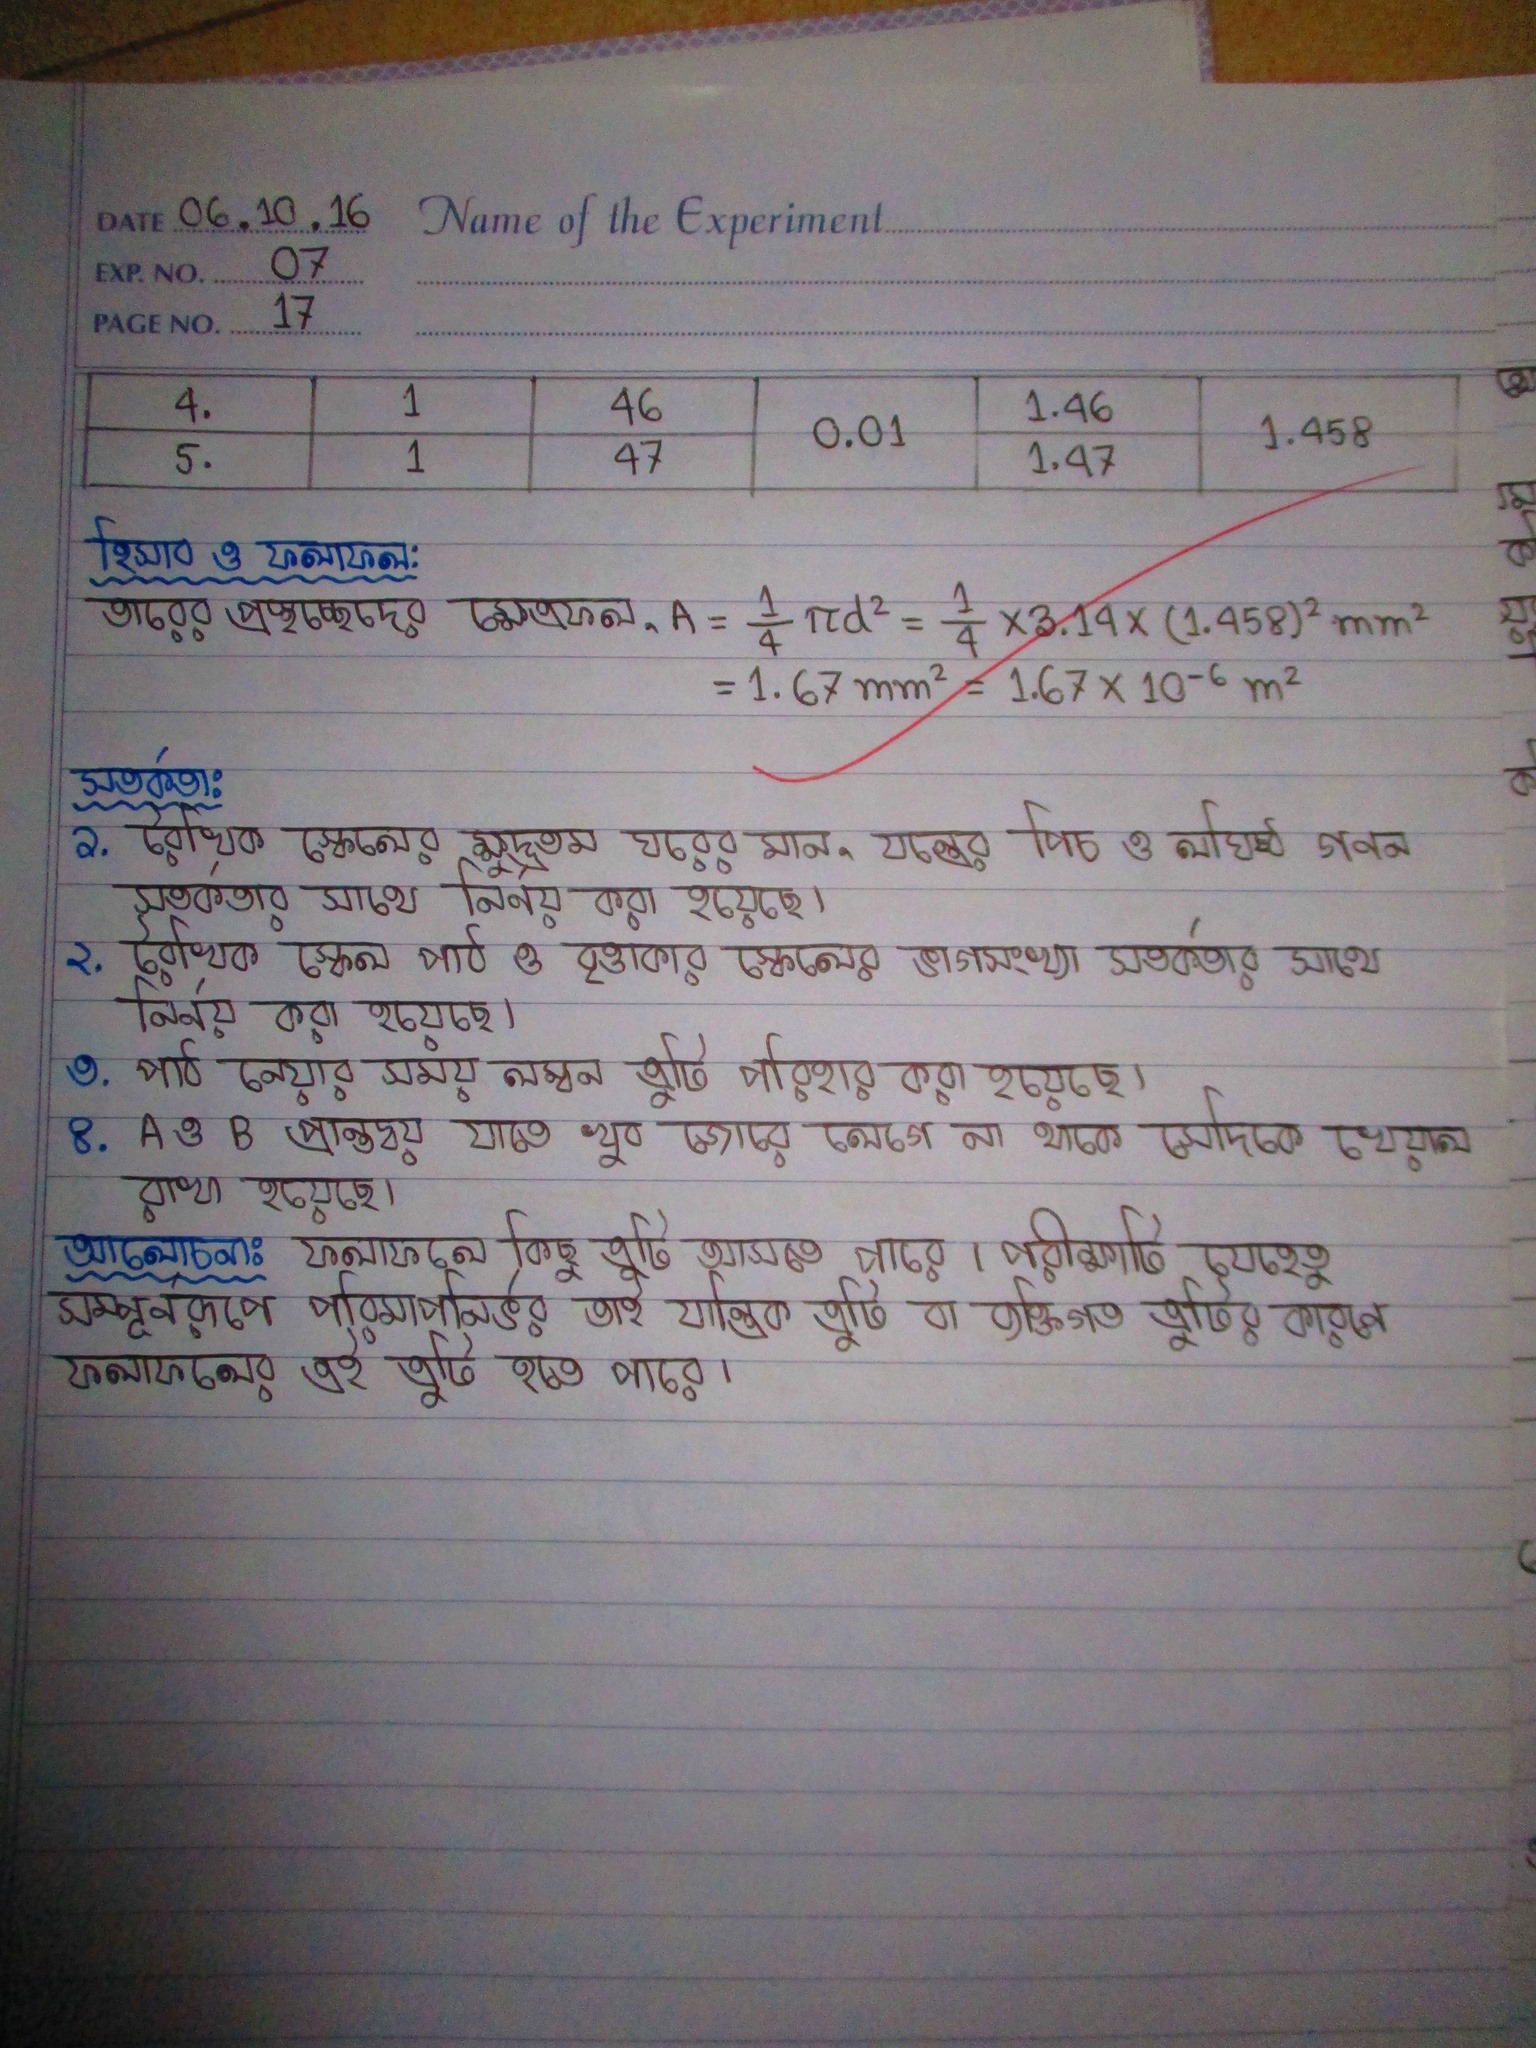 DATE 06.10.16 Name of the Experiment
EXP. NO. 07
PAGE NO. 17
4. 1 46 0.01 1.46 1.458
5. 1 47 1.47
হিসাব ও ফলাফল:
তারের প্রস্থচ্ছেদের ক্ষেত্রফল, A = 1/4 πd² = 1/4 × 3.14 × (1.458)² mm²
= 1.67 mm² = 1.67 × 10⁻⁶ m²
সতর্কতাঃ
১. রৈখিক স্কেলের ক্ষুদ্রতম ঘরের মান, যন্ত্রের পিচ ও লঘিষ্ঠ গণন
সতর্কতার সাথে নির্ণয় করা হয়েছে।
২. রৈখিক স্কেল পাঠ ও বৃত্তাকার স্কেলের ভাগসংখ্যা সতর্কতার সাথে
নির্ণয় করা হয়েছে।
৩. পাঠ নেয়ার সময় লম্বন ত্রুটি পরিহার করা হয়েছে।
৪. A ও B প্রান্তদ্বয় যাতে খুব জোরে লেগে না থাকে সেদিকে খেয়াল
রাখা হয়েছে।
আলোচনাঃ ফলাফলে কিছু ত্রুটি আসতে পারে। পরীক্ষাটি যেহেতু
সম্পূর্নরূপে পরিমাপনির্ভর তাই যান্ত্রিক ত্রুটি বা ব্যক্তিগত ত্রুটির কারণে
ফলাফলের এই ত্রুটি হতে পারে।